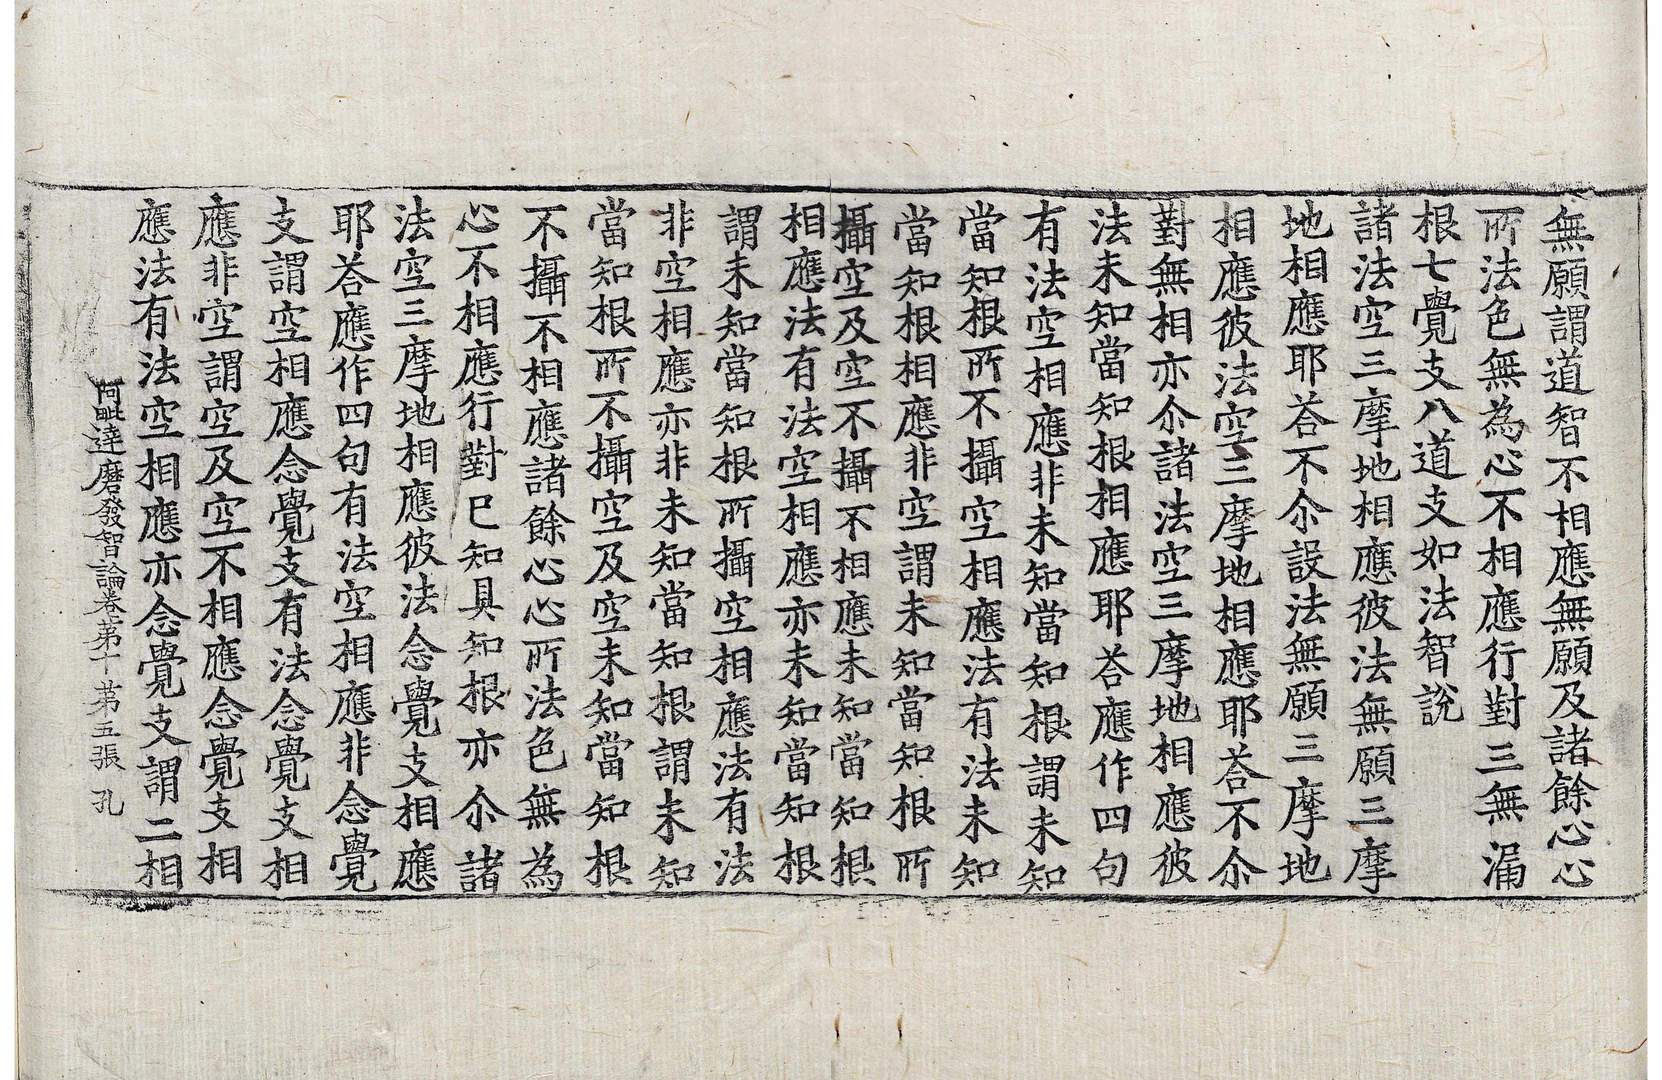 無願謂道智不相應無願及諸餘心心
所法色無為心不相應行對三無漏
根七覺支八道支如法智說
諸法空三摩地相應彼法無願三摩
地相應耶荅不尒設法無願三摩地
相應彼法空三摩地相應耶荅不尒
對無相亦尒諸法空三摩地相應彼
法未知當知根相應耶荅應作四句
有法空相應非未知當知根謂未知
當知根所不攝空相應法有法未知
當知根相應非空謂未知當知根所
攝空及空不攝不相應未知當知根
相應法有法空相應亦未知當知根
謂未知當知根所攝空相應法有法
非空相應亦非未知當知根謂未知
當知根所不攝空及空未知當知根
不攝不相應諸餘心心所法色無為
心不相應行對已知具知根亦尒諸
法空三摩地相應彼法念覺支相應
耶荅應作四句有法空相應非念覺
支謂空相應念覺支有法念覺支相
應非空謂空及空不相應念覺支相
應法有法空相應亦念覺支謂二相
阿毗達磨發智論卷第十 第五張 孔